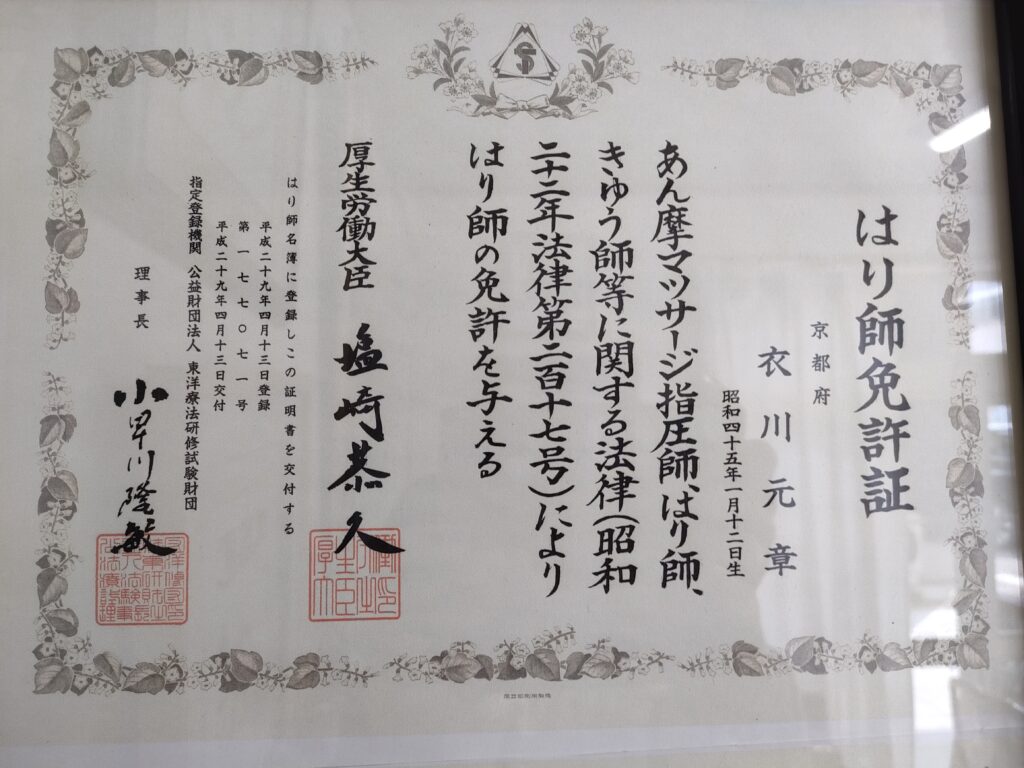 はり師免許証
京都府
衣川元章
昭和四十五年一月十二日生
あん摩マツサージ指圧師、はり師、
きゆう師等に関する法律(昭和
二十二年法律第二百十七号)により
はり師の免許を与える
厚生労働大臣 塩崎恭久
はり師名簿に登録しこの証明書を交付する
平成二十九年四月十三日登録
第一七七〇七一号
平成二十九年四月十三日交付
指定登録機関 公益財団法人 東洋療法研修試験財団
理事長 小早川隆敏